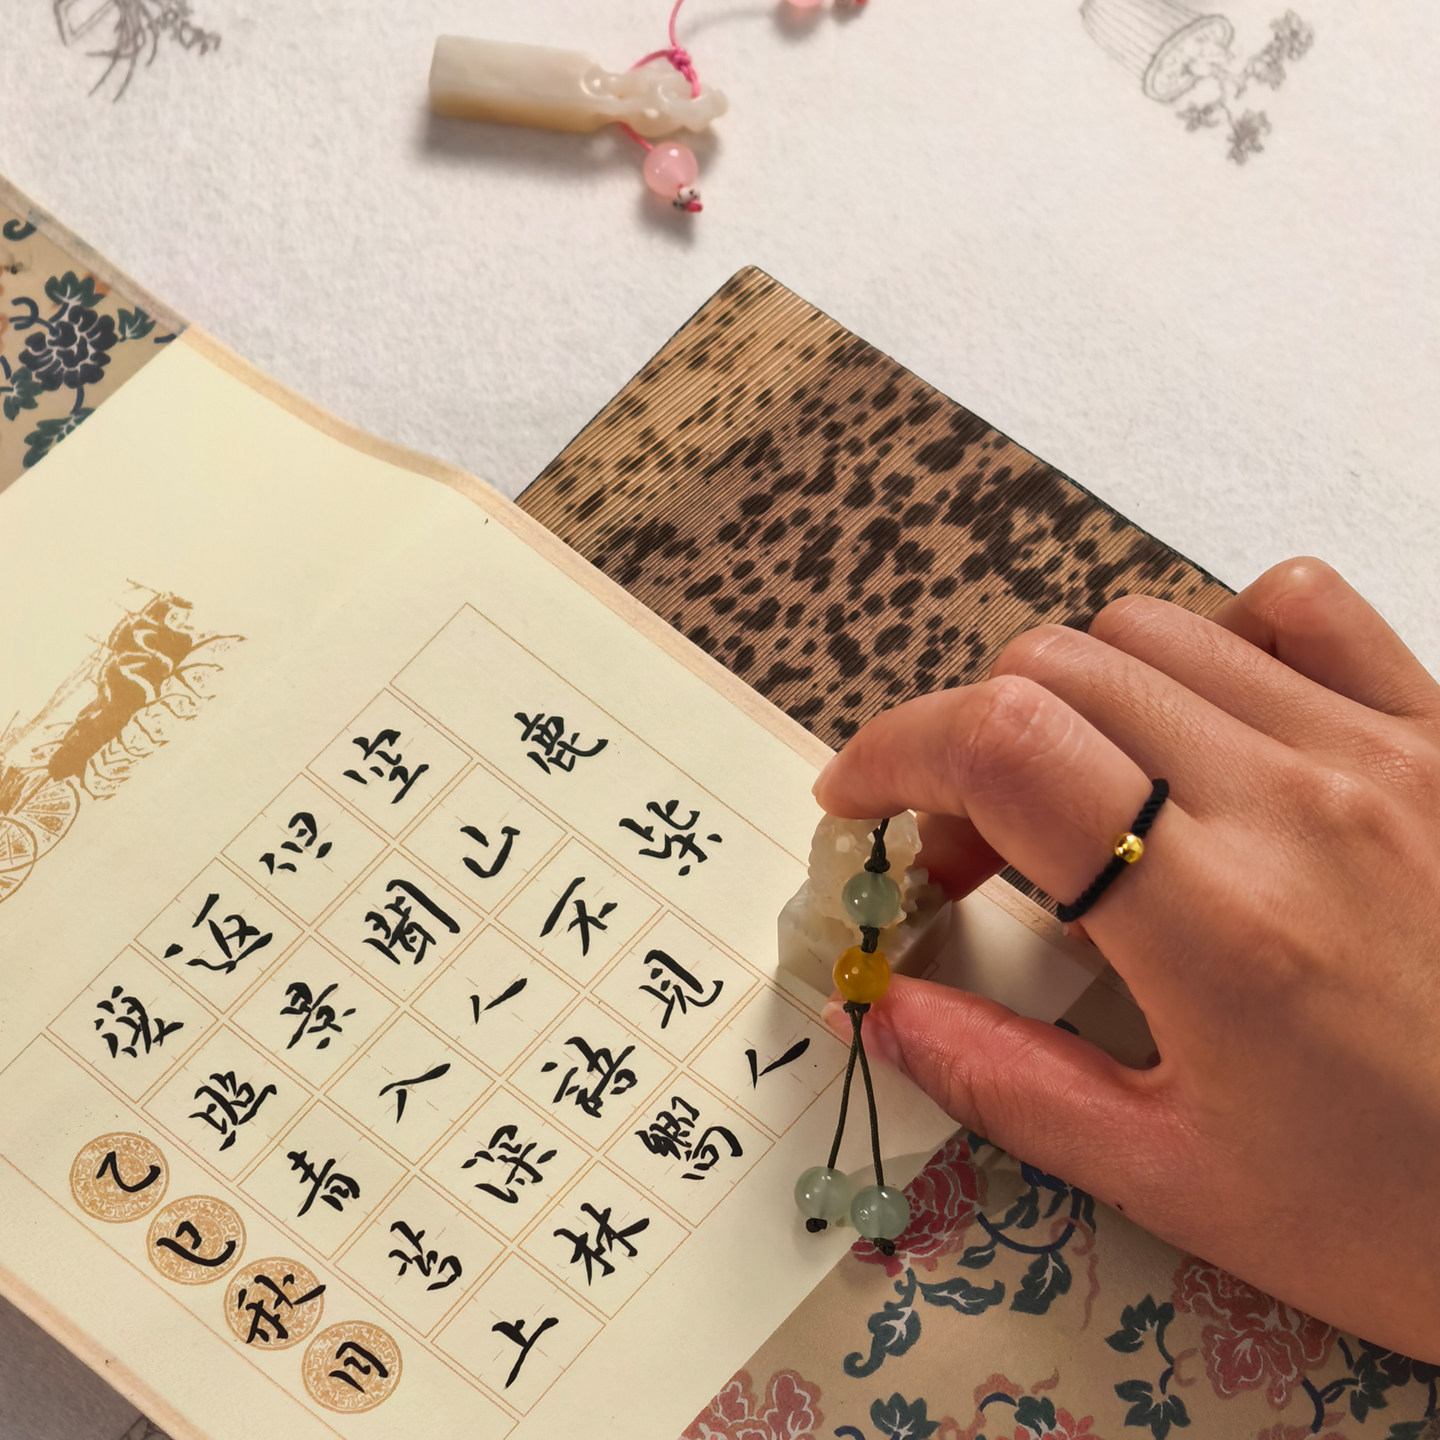 鹿柴
空山不見人
但聞人語響
返景入深林
復照青苔上
乙巳秋月